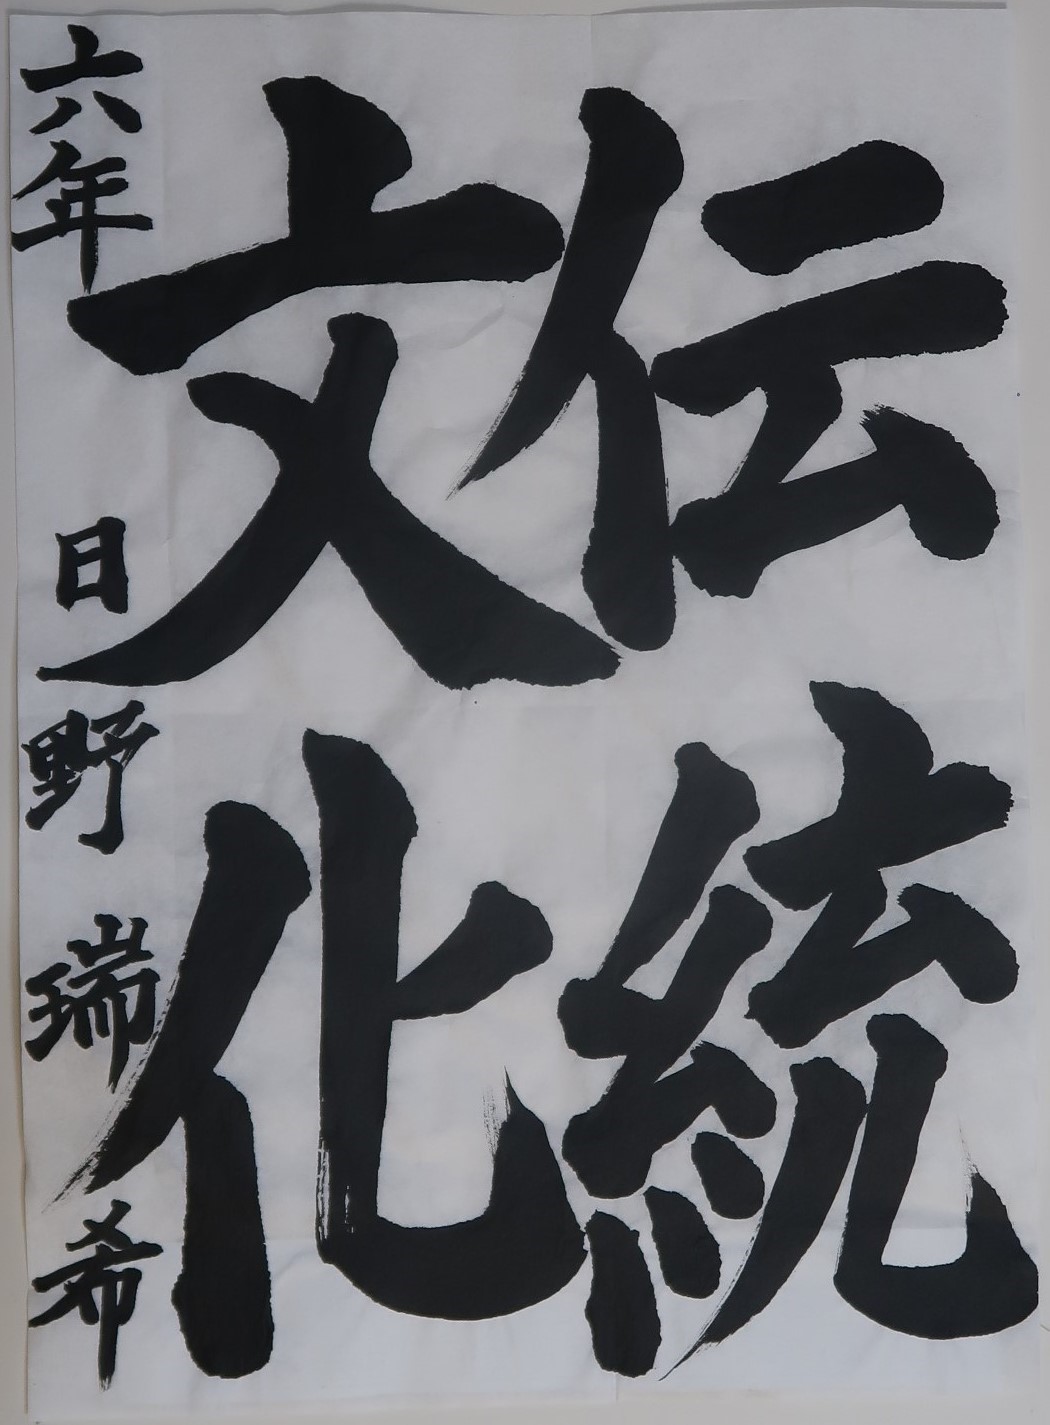 伝統
文化
六年 日野瑞希